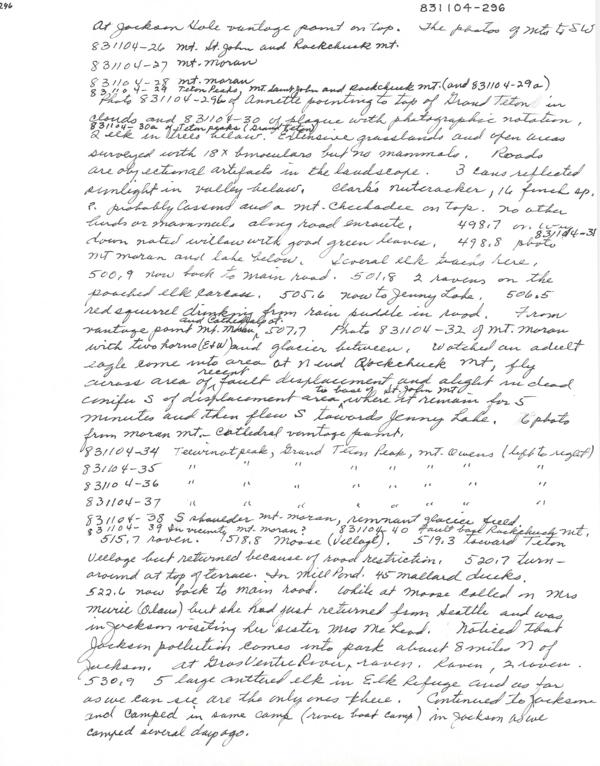 296
831104-296
At Jackson Hole vantage point on top. The photos of mts to SW
831104-26 mt. St. John and Rockchuck mt.
831104-27 mt. moran
831104-28 mt. moran
831104-29 Teton Peaks, mt. Saint John and Rockchuck mt. (and 831104-29a)
Photo 831104-29b of Annette pointing to top of Grand Teton in
clouds and 831104-30 of plaque with photographic notation,
831104-30a of Teton peaks (Grand Teton)
2 elk in trees below. Extensive grasslands and open areas
surveyed with 18x binoculars but no mammals. Roads
are objectional artifacts in the landscape. 3 cans reflected
sunlight in valley below. Clark's nutcracker, 16 finch sp.
?. probably Cassins and a mt. Chickadee on top. no other
birds or mammals along road enroute. 498.7 on way
831104-31
down noted willow with good green leaves. 498.8 photo
mt moran and lake below. Several elk hunters here.
500.9 now back to main road. 501.8 2 ravens on the
poached elk carcass. 505.6 now to Jenny Lake. 506.5
red squirrel drinking from rain puddle in road. From
and Cathedral pt.
vantage point mt. moran, 507.7 Photo 831104-32 of mt. moran
with two horns (E&W) and glacier between. Watched an adult
eagle come into area at N end Rockchuck mt, fly
across area of recent fault displacement and alight in dead
conifer S of displacement area to base of St. John mt. where it remain for 5
minutes and then flew S towards Jenny Lake. 6 photo
from moran mt. - Cathedral vantage point.
831104-34 Teewinot peak, Grand Teton Peak, mt. Owens (left to right)
831104-35 " " " " " " "
831104-36 " " " " " " "
831104-37 " " " " " " "
831104-38 S shoulder mt. moran, remnant glacier field.
831104-39 In vicinity mt. moran? 831104-40 fault base Rockchuck mt.
515.7 raven. 518.8 Moose (Village). 519.3 toward Teton
Village but returned because of road restriction. 520.7 turn-
around at top of terrace. In Mill Pond. 45 mallard ducks.
522.6 now back to main road. While at Moose called on Mrs
Murie (Olaus) but she had just returned from Seattle and was
in Jackson visiting her sister Mrs McLeod. Noticed that
Jackson pollution comes into park about 8 miles N of
Jackson. At Gros Ventre River, raven. Raven, 2 raven.
530.9 5 large antlered elk in Elk Refuge and as far
as we can see are the only ones there. Continued to Jackson
and camped in same camp (river boat camp) in Jackson as we
camped several days ago.